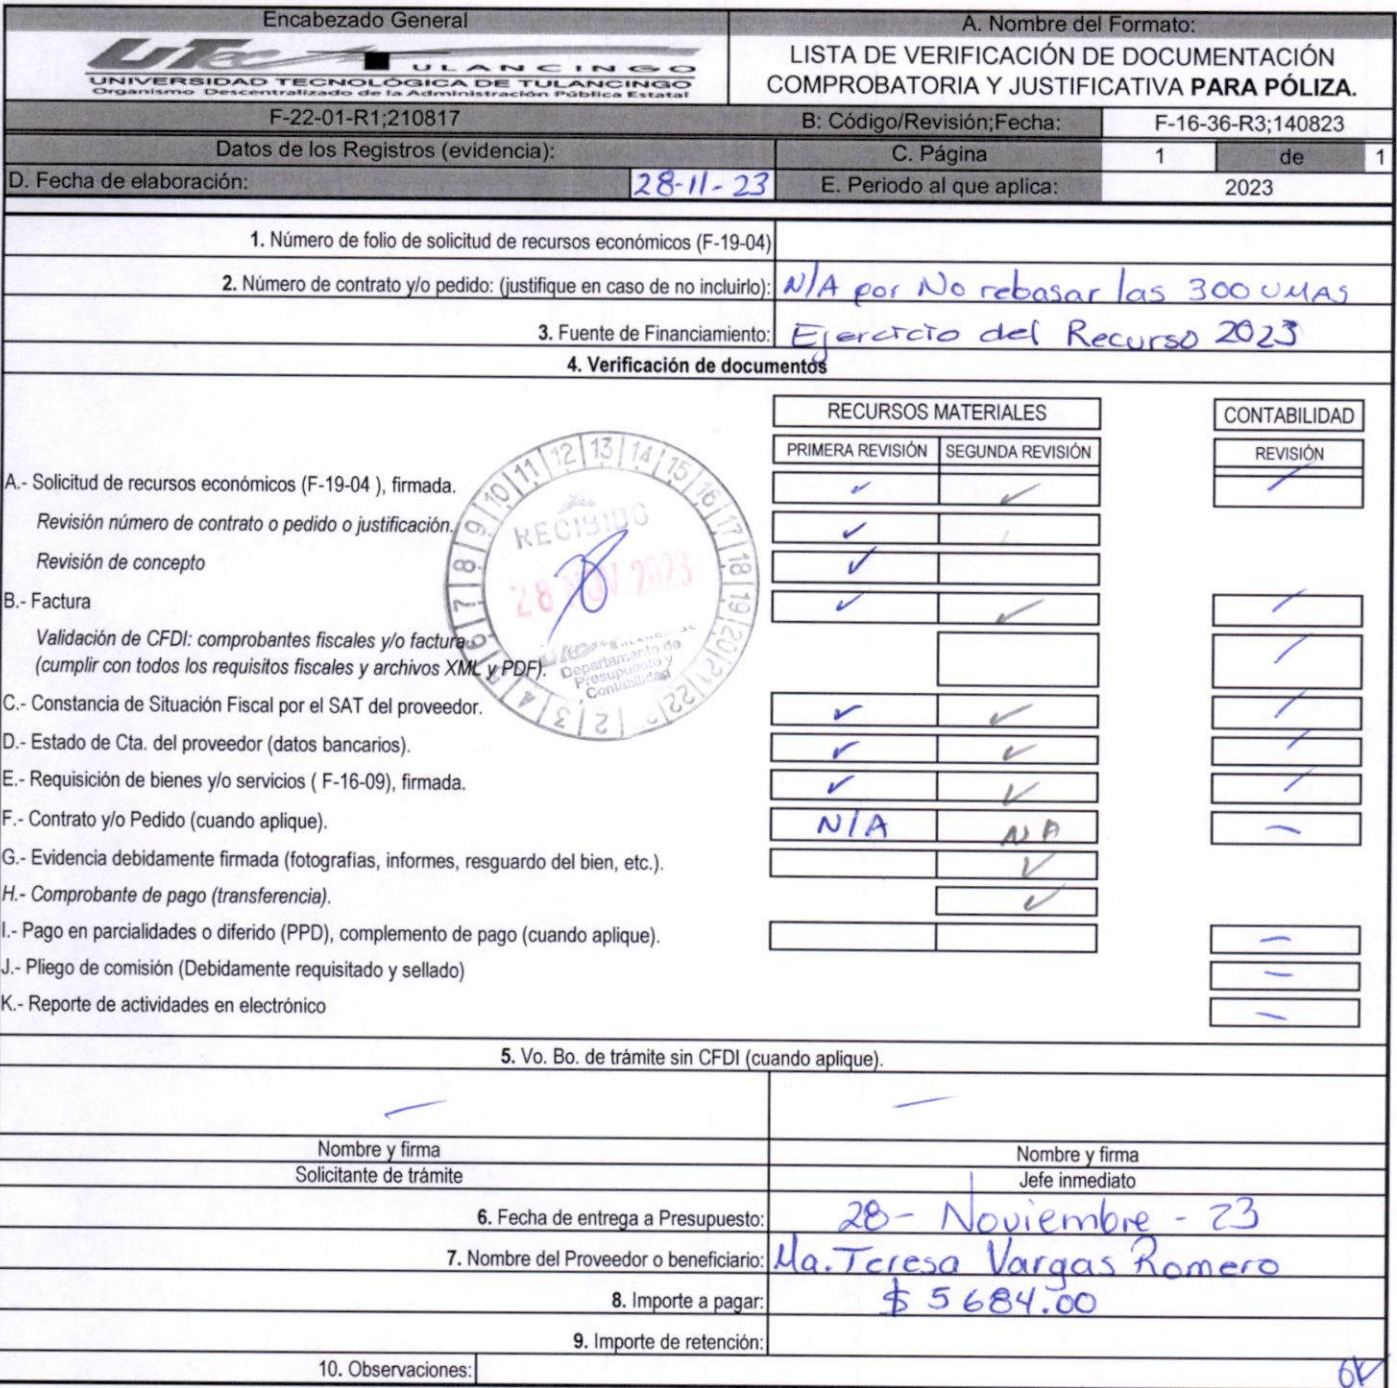 Encabezado General
A. Nombre del Formato:
UTec TULANCINGO
UNIVERSIDAD TECNOLÓGICA DE TULANCINGO
Organismo Descentralizado de la Administración Pública Estatal
LISTA DE VERIFICACIÓN DE DOCUMENTACIÓN
COMPROBATORIA Y JUSTIFICATIVA PARA PÓLIZA.
F-22-01-R1;210817
B: Código/Revisión;Fecha: F-16-36-R3;140823
Datos de los Registros (evidencia):
C. Página 1 de 1
D. Fecha de elaboración: 28-11-23
E. Periodo al que aplica: 2023
1. Número de folio de solicitud de recursos económicos (F-19-04)
2. Número de contrato y/o pedido: (justifique en caso de no incluirlo): N/A por No rebasar las 300 UMAS
3. Fuente de Financiamiento: Ejercicio del Recurso 2023
4. Verificación de documentos
RECURSOS MATERIALES
CONTABILIDAD
PRIMERA REVISIÓN SEGUNDA REVISIÓN
REVISIÓN
A.- Solicitud de recursos económicos (F-19-04 ), firmada. ✓ ✓ /
Revisión número de contrato o pedido o justificación. ✓
Revisión de concepto ✓
B.- Factura ✓ ✓ /
Validación de CFDI: comprobantes fiscales y/o factura /
(cumplir con todos los requisitos fiscales y archivos XML y PDF).
C.- Constancia de Situación Fiscal por el SAT del proveedor. ✓ ✓ /
D.- Estado de Cta. del proveedor (datos bancarios). ✓ ✓ /
E.- Requisición de bienes y/o servicios ( F-16-09), firmada. ✓ ✓ /
F.- Contrato y/o Pedido (cuando aplique). N/A NA —
G.- Evidencia debidamente firmada (fotografías, informes, resguardo del bien, etc.). ✓
H.- Comprobante de pago (transferencia). ✓
I.- Pago en parcialidades o diferido (PPD), complemento de pago (cuando aplique). —
J.- Pliego de comisión (Debidamente requisitado y sellado) —
K.- Reporte de actividades en electrónico —
RECIBIDO
28 NOV 2023
Departamento de
Presupuesto y
Contabilidad
1 2 3 4 5 6 7 8 9 10 11 12 13 14 15 16 17 18 19 20 21 22
5. Vo. Bo. de trámite sin CFDI (cuando aplique).
— —
Nombre y firma
Nombre y firma
Solicitante de trámite
Jefe inmediato
6. Fecha de entrega a Presupuesto: 28- Noviembre - 23
7. Nombre del Proveedor o beneficiario: Ma. Teresa Vargas Romero
8. Importe a pagar: $ 5684.00
9. Importe de retención:
10. Observaciones: